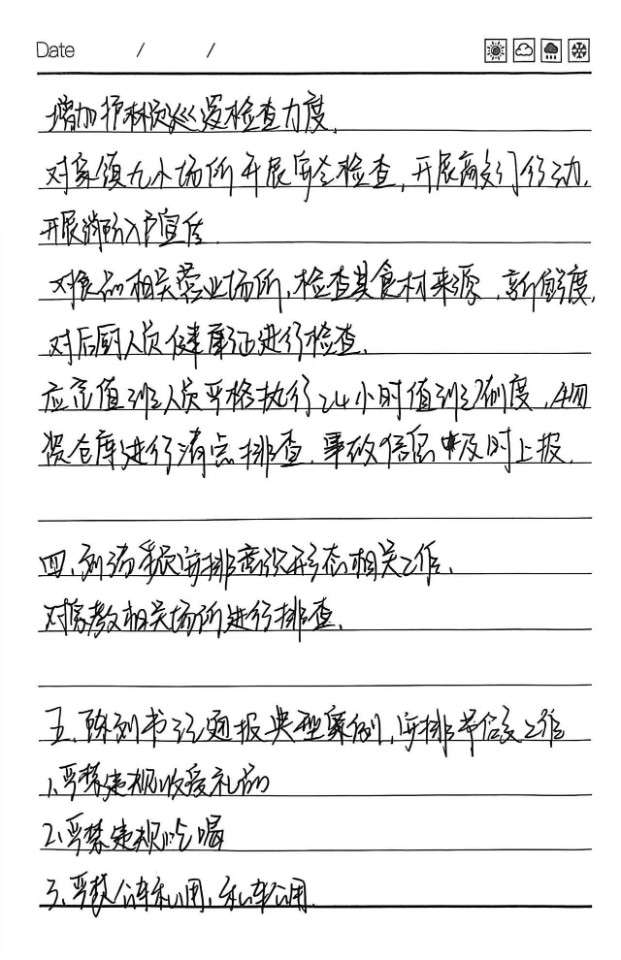 Date / /
增加护林员巡逻检查力度。
对家镇九小场所开展安全检查,开展敲门行动,
开展消防入户宣传
对食品相关营业场所,检查其食材来源、新鲜度,
对后厨人员健康证进行检查。
应急值班人员严格执行24小时值班制度,对物
资仓库进行清点排查。事故信息及时上报。
四、刘 委员安排意识形态相关工作。
对宗教相关场所进行排查。
五、陈副书记通报典型案例,安排节 工作
1.严禁违规收受礼品
2.严禁违规吃喝
3.严禁公车私用,私车公用。